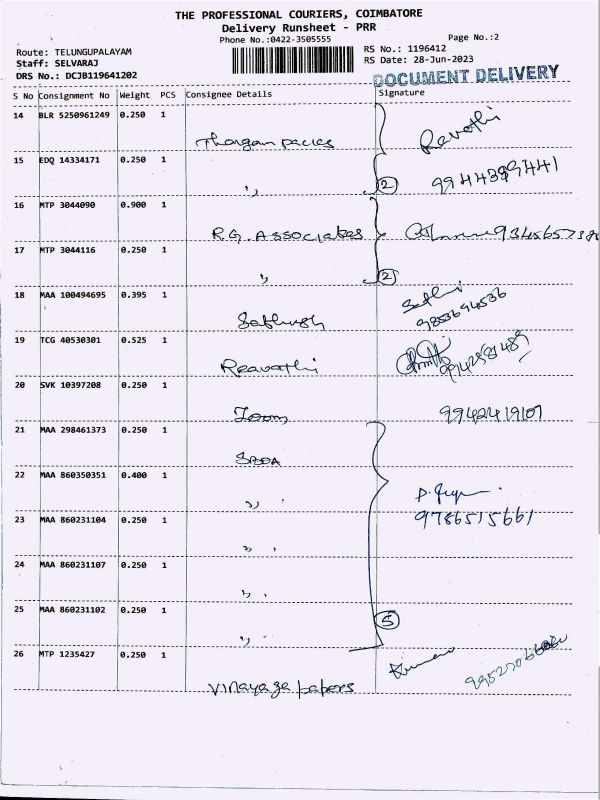 THE PROFESSIONAL COURIERS, COIMBATORE
Delivery Runsheet - PRR
Phone No.:0422-3505555
Page No.:2
Route: TELUNGUPALAYAM
RS No.: 1196412
Staff: SELVARAJ
RS Date: 28-Jun-2023
DRS No.: DCJB119641202
DOCUMENT DELIVERY
S No Consignment No Weight PCS Consignee Details Signature
14 BLR 5250961249 0.250 1
Revathi
15 EDQ 14334171 0.250 1
" 2
16 MTP 3044090 0.900 1
R.G. Associates
17 MTP 3044116 0.250 1
" 2
18 MAA 100494695 0.395 1
Sathi
Sathish
19 TCG 40530301 0.525 1
20 SVK 10397208 0.250 1
Zoom 9942419107
21 MAA 298461373 0.250 1
22 MAA 860350351 0.400 1
"
23 MAA 860231104 0.250 1
9786515661
"
24 MAA 860231107 0.250 1
"
25 MAA 860231102 0.250 1
" 5
26 MTP 1235427 0.250 1
Vinayaga papers